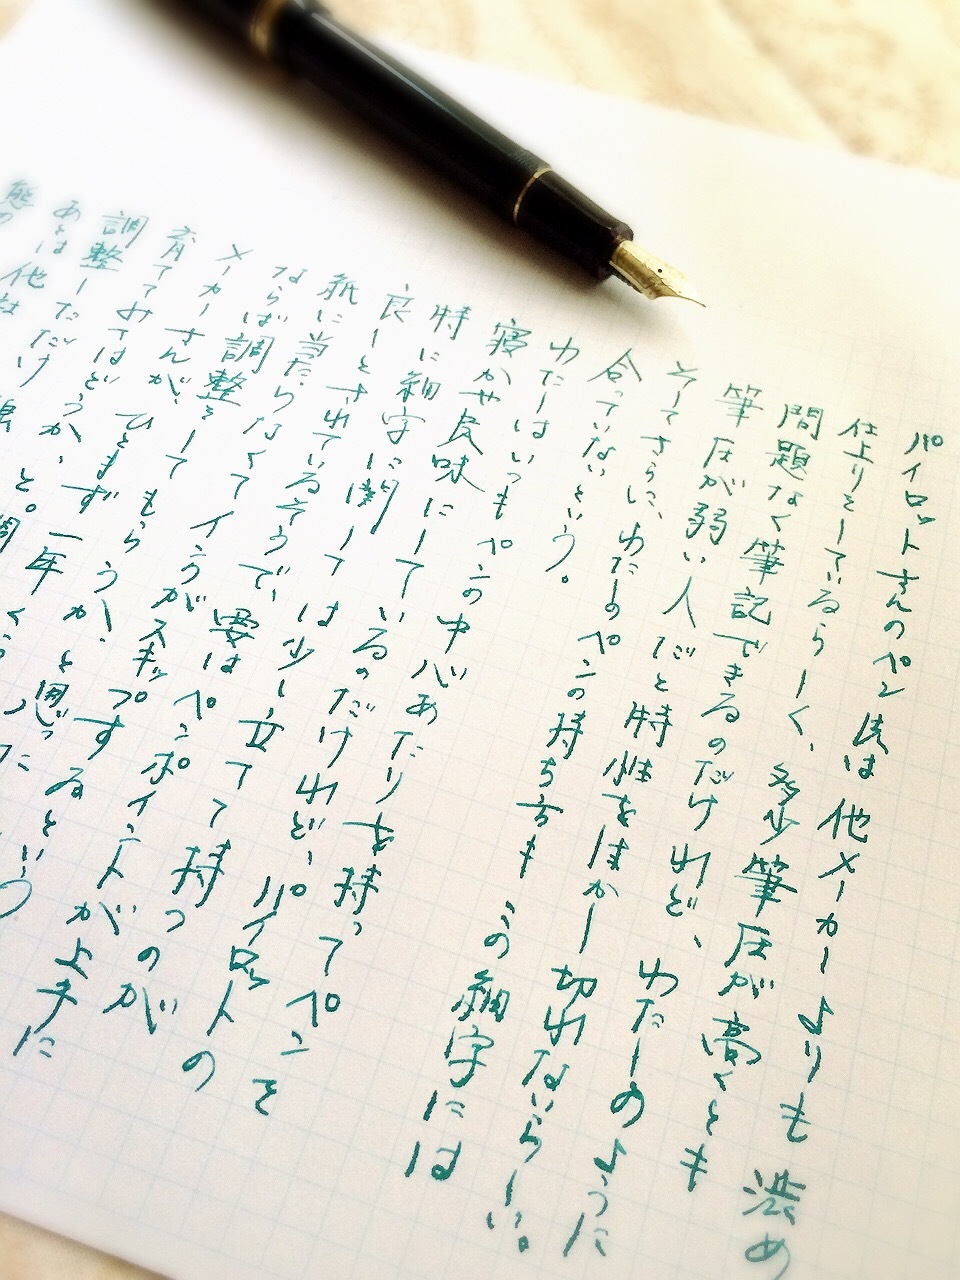 パイロットさんのペン先は他メーカーよりも渋め
仕上りをしているらしく、多少筆圧が高くとも
問題なく筆記できるのだけれど、わたしのように
筆圧が弱い人だと特性をいかし切れないらしい。
そしてさらに、わたしのペンの持ち方もこの細字には
合っていないという。
わたしはいつもペンの中心あたりを持ってペンを
寝かせ気味にしているのだけれど、パイロットの
特に細字に関しては少し立てて持つのが
良しとされているそうで、要はペンポイントが上手に
紙に当たらなくてインクがスキップするという
ならば調整をしてもらうか、と思った
メーカーさんが、ひとまず一年くら
育ててみてはどうか、と。
調整しただけ
あとは他社
態の